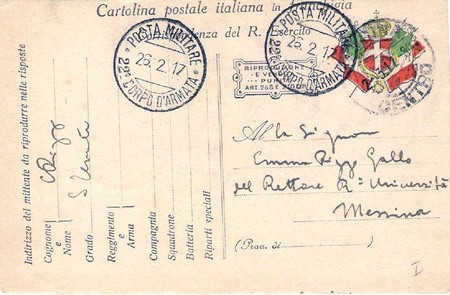 Cartolina postale italiana in franchigia
Corrispondenza del R. Esercito
POSTA MILITARE
26.2.17
22º CORPO D'ARMATA
POSTA MILITARE
26.2.17
22º CORPO D'ARMATA
RIPRODUZIONE
E VENDITA
PUNITE
Indirizzo del mittente da riprodurre nelle risposte
Cognome
e
Nome
Grado
Reggimento
e
Arma
Compagnia
Squadrone
Batteria
Riparti speciali
Alla Signora
Emma Rizzo Gallo
del Rettore Rª Università
Messina
(Prov. di )
I